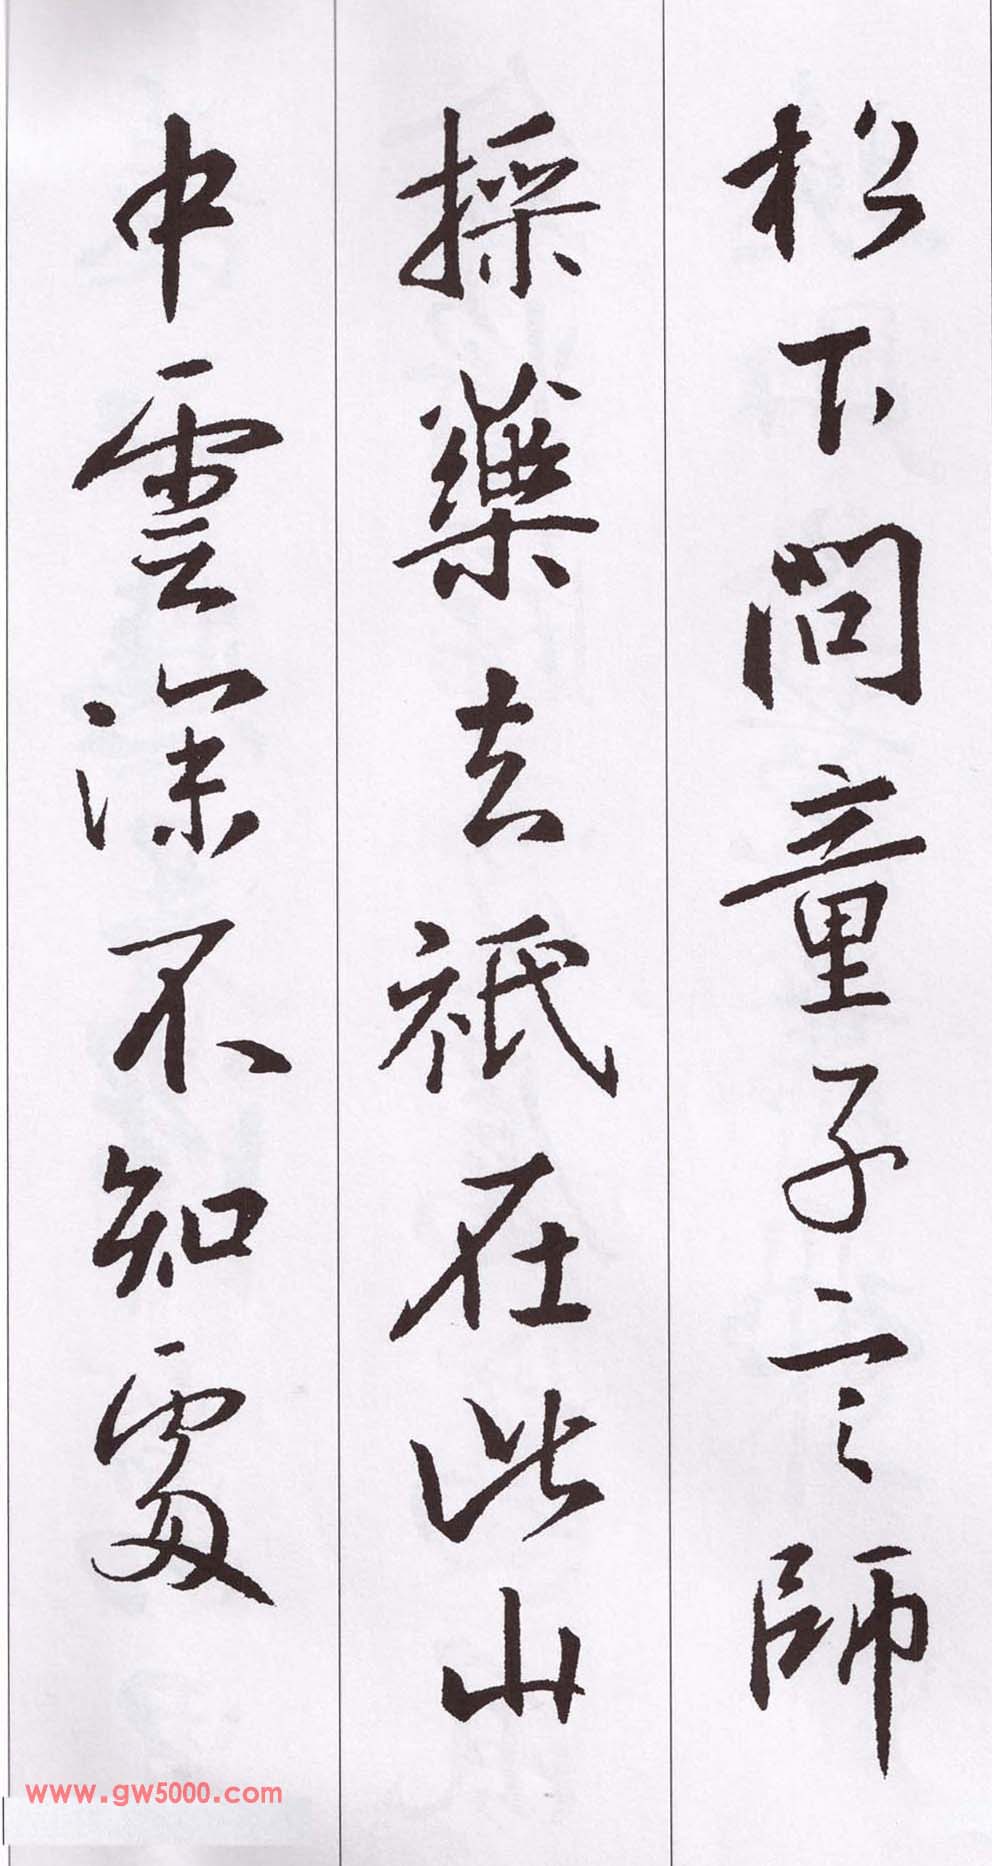 松下問童子言師
採藥去祇在此山
中雲深不知處
www.gw5000.com